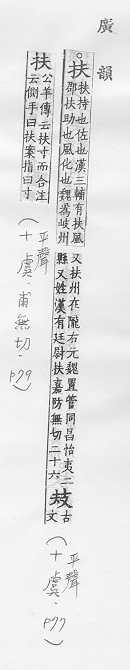 廣韻
○扶 扶持也佐也漢三輔有扶風
郡扶助也風化也魏為岐州
又扶州在隴右元魏置管同昌怡夷二
縣又姓漢有廷尉扶嘉防無切二十六
𢻳 古
文
(平聲
十虞. P77)
扶 公羊傳云扶寸而合注
云側手曰扶案指曰寸
(平聲
十虞.甫無切. P79)